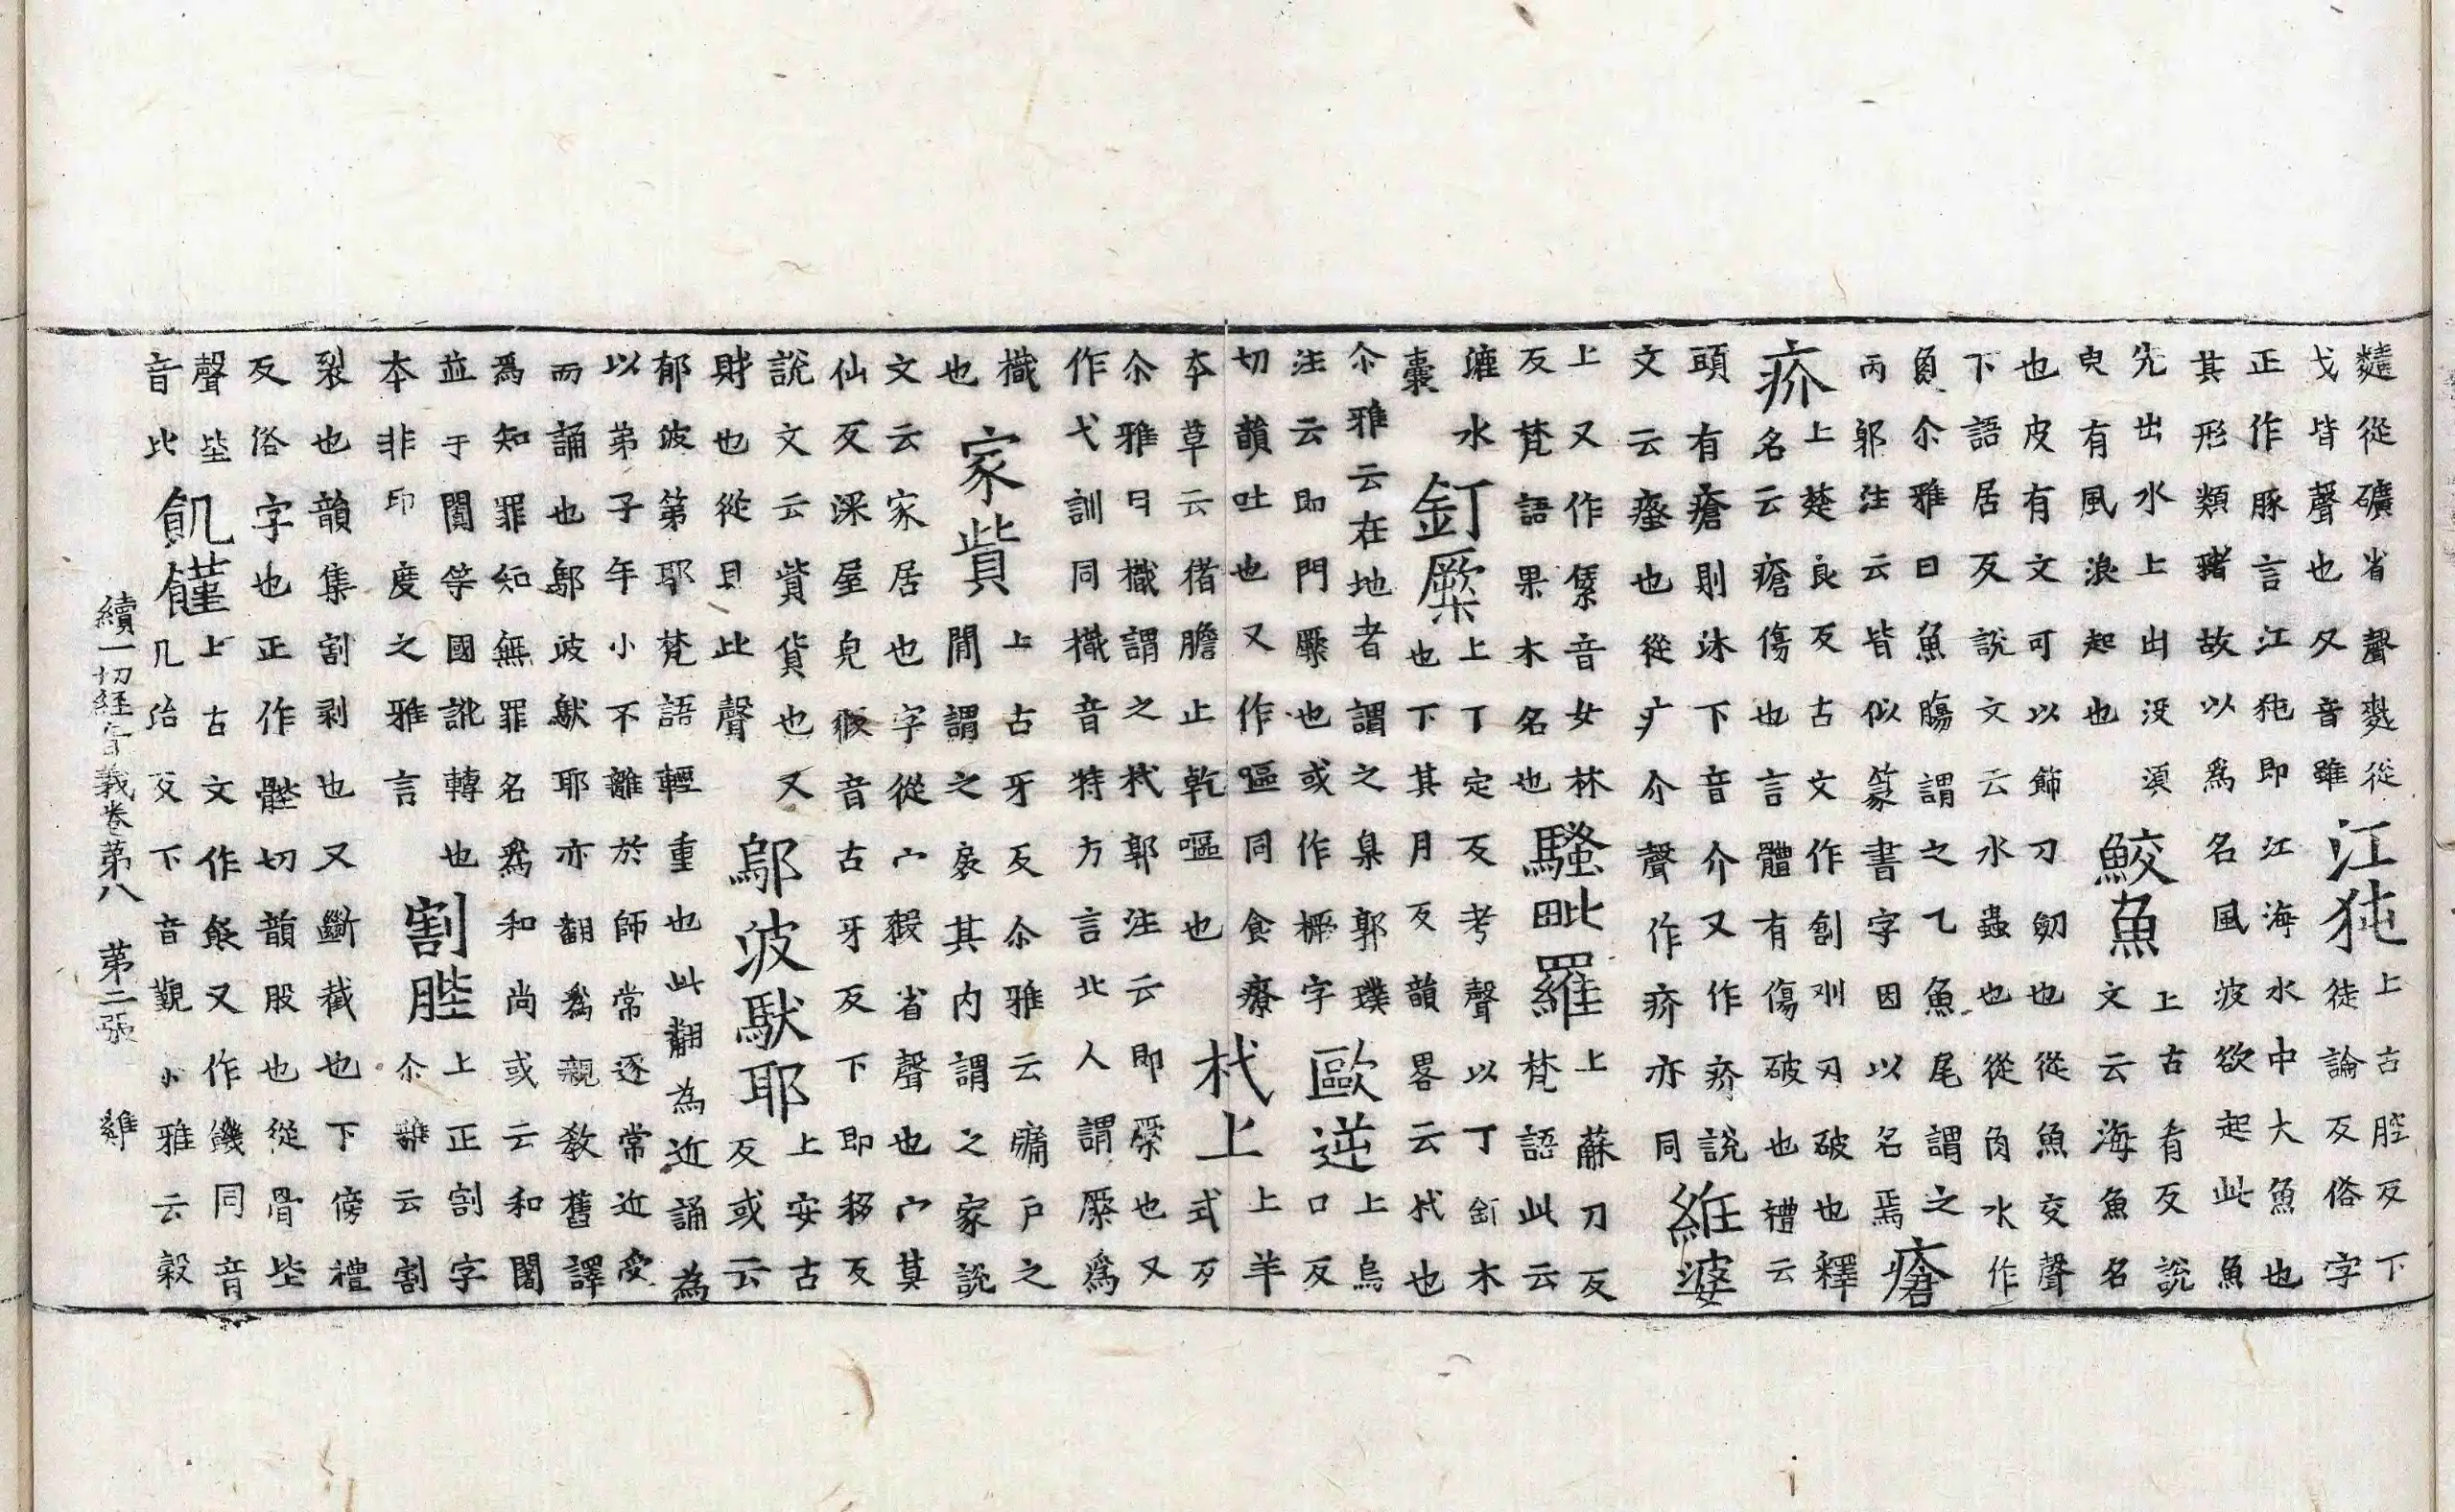 麮從礦省聲麩從
戈皆聲也又音雖
江㹠
上古腔反下
徒論反俗字
正作豚言江㹠即江海水中大魚也
其形類豬故以爲名風波欲起此魚
先出水上出没湏
臾有風浪起也
鮫魚
上古肴反説
文云海魚名
也皮有文可以飾刀劒也從魚交聲
下語居反説文云水蟲也從𠂊水作
𩵋尒雅曰魚膓謂之乙魚尾謂之
丙郭注云皆似篆書字因以名焉
瘡
疥
上楚良反古文作創刅刃破也釋
名云瘡傷也言體有傷破也禮云
頭有瘡則沐下音介又作疥説
文云瘙也從疒介聲作疥亦同
維婆
上又作音女林
反梵語果木名也
騷毗羅
上蘇刀反
梵語此云
漉水
囊
釘橜
上丁定反考聲以丁釘木
也下其月反韻畧云杙也
尒雅云在地者謂之臬郭璞
注云即門橜也或作橛字
歐逆
上烏
口反
切韻吐也又作嘔同食療
本草云猪膽止乾嘔也
杙上
上羊
式反
尒雅曰樴謂之杙郭注云即橜也又
作弋訓同樴音特方言北人謂橜爲
樴
也
家貲
上古牙反尒雅云牖戶之
閒謂之扆其内謂之家説
文云家居也字從宀豭省聲也宀莫
仙反深屋皃豭音古牙反下即移反
説文云貲貨也又
財也從貝此聲
鄔波馱耶
上安古
反或云
郁波第耶梵語輕重也此翻為近誦為
以弟子年小不離於師常逐常近受
而誦也鄔波馱耶亦翻爲親教舊譯
爲知罪知無罪名爲和尚或云和闍
並于闐等國訛轉也
本非印度之雅言
割䏶
上正割字
尒雅云割
裂也韻集割剥也又斷截也下傍禮
反俗字也正作髀切韻股也從骨坒
聲坒
音比
飢饉
上古文作又作饑同音
几治反下音覲小雅云穀
續一切經音義卷第八 第二張 雞